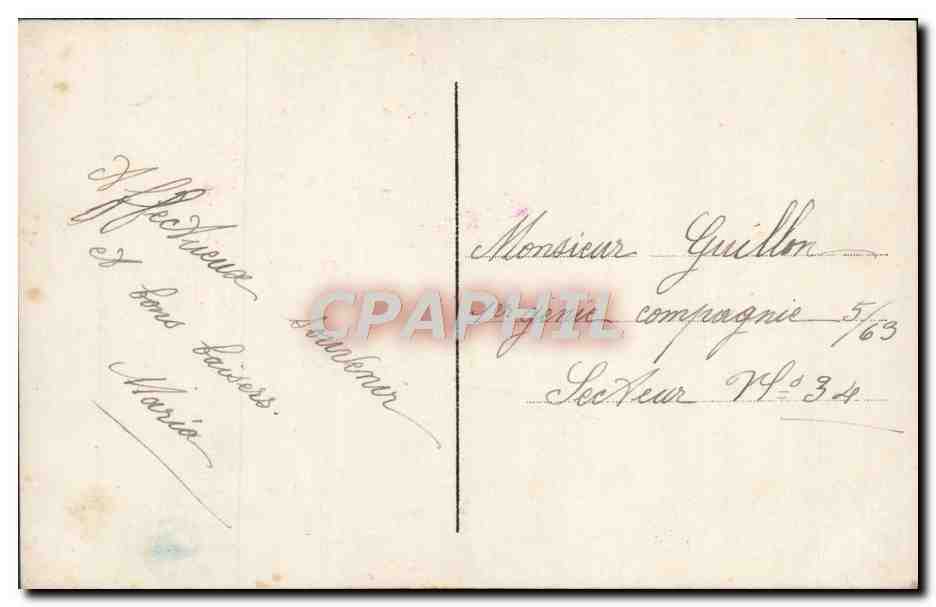 Affectueux souvenir
et bons baisers.
Maria
Monsieur Guillon
génie compagnie 5/63
Secteur No 34
CPAPHIL